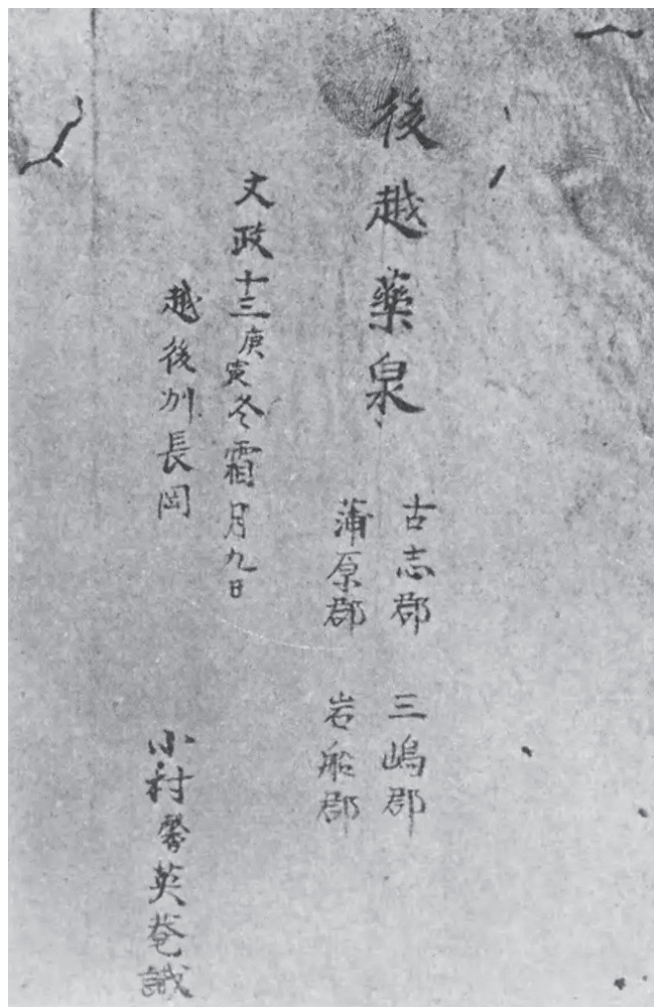 後越藥泉
古志郡 三嶋郡
蒲原郡 岩船郡
文政十三庚寅冬霜月九日
越後州長岡
小村 英菴誠